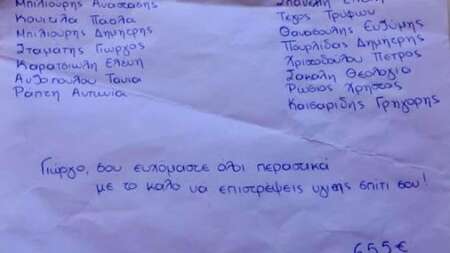 Μπιλιούρης Αναστάσης
Κουτίλα Πάολα
Μπιλιούρης Δημήτρης
Σταμάτης Γιώργος
Καρατσιώλη Ελένη
Ανθοπούλου Τάνια
Ράπτη Αντωνία
Τέγος Τρύφων
Θανασούλης Ευθύμης
Παυλίδας Δημήτρης
Χριστοδούλου Πέτρος
Σακαλή Θεολογία
Ρώσιος Χρήστος
Καισαρίδης Γρηγόρης
Γιώργο, σου ευχόμαστε όλοι περαστικά
με το καλό να επιστρέψεις υγιής σπίτι σου!
655€